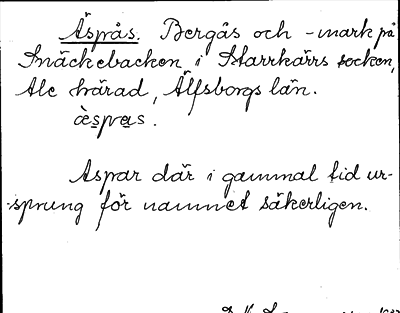 Äspås. Bergås och -mark på
Snäckebacken i Starrkärrs socken,
Ale härad, Älfsborgs län.
ä̀spas.
Aspar där i gammal tid ur-
sprung för namnet säkerligen.